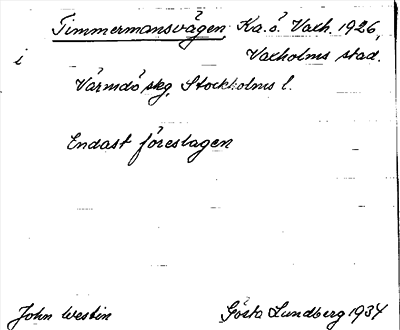 Timmermansvägen, Ka. ö. Vaxh. 1926,
i Vaxholms stad.
Värmdö skg, Stockholms l.
Endast föreslagen
John Westin Gösta Lundberg 1934